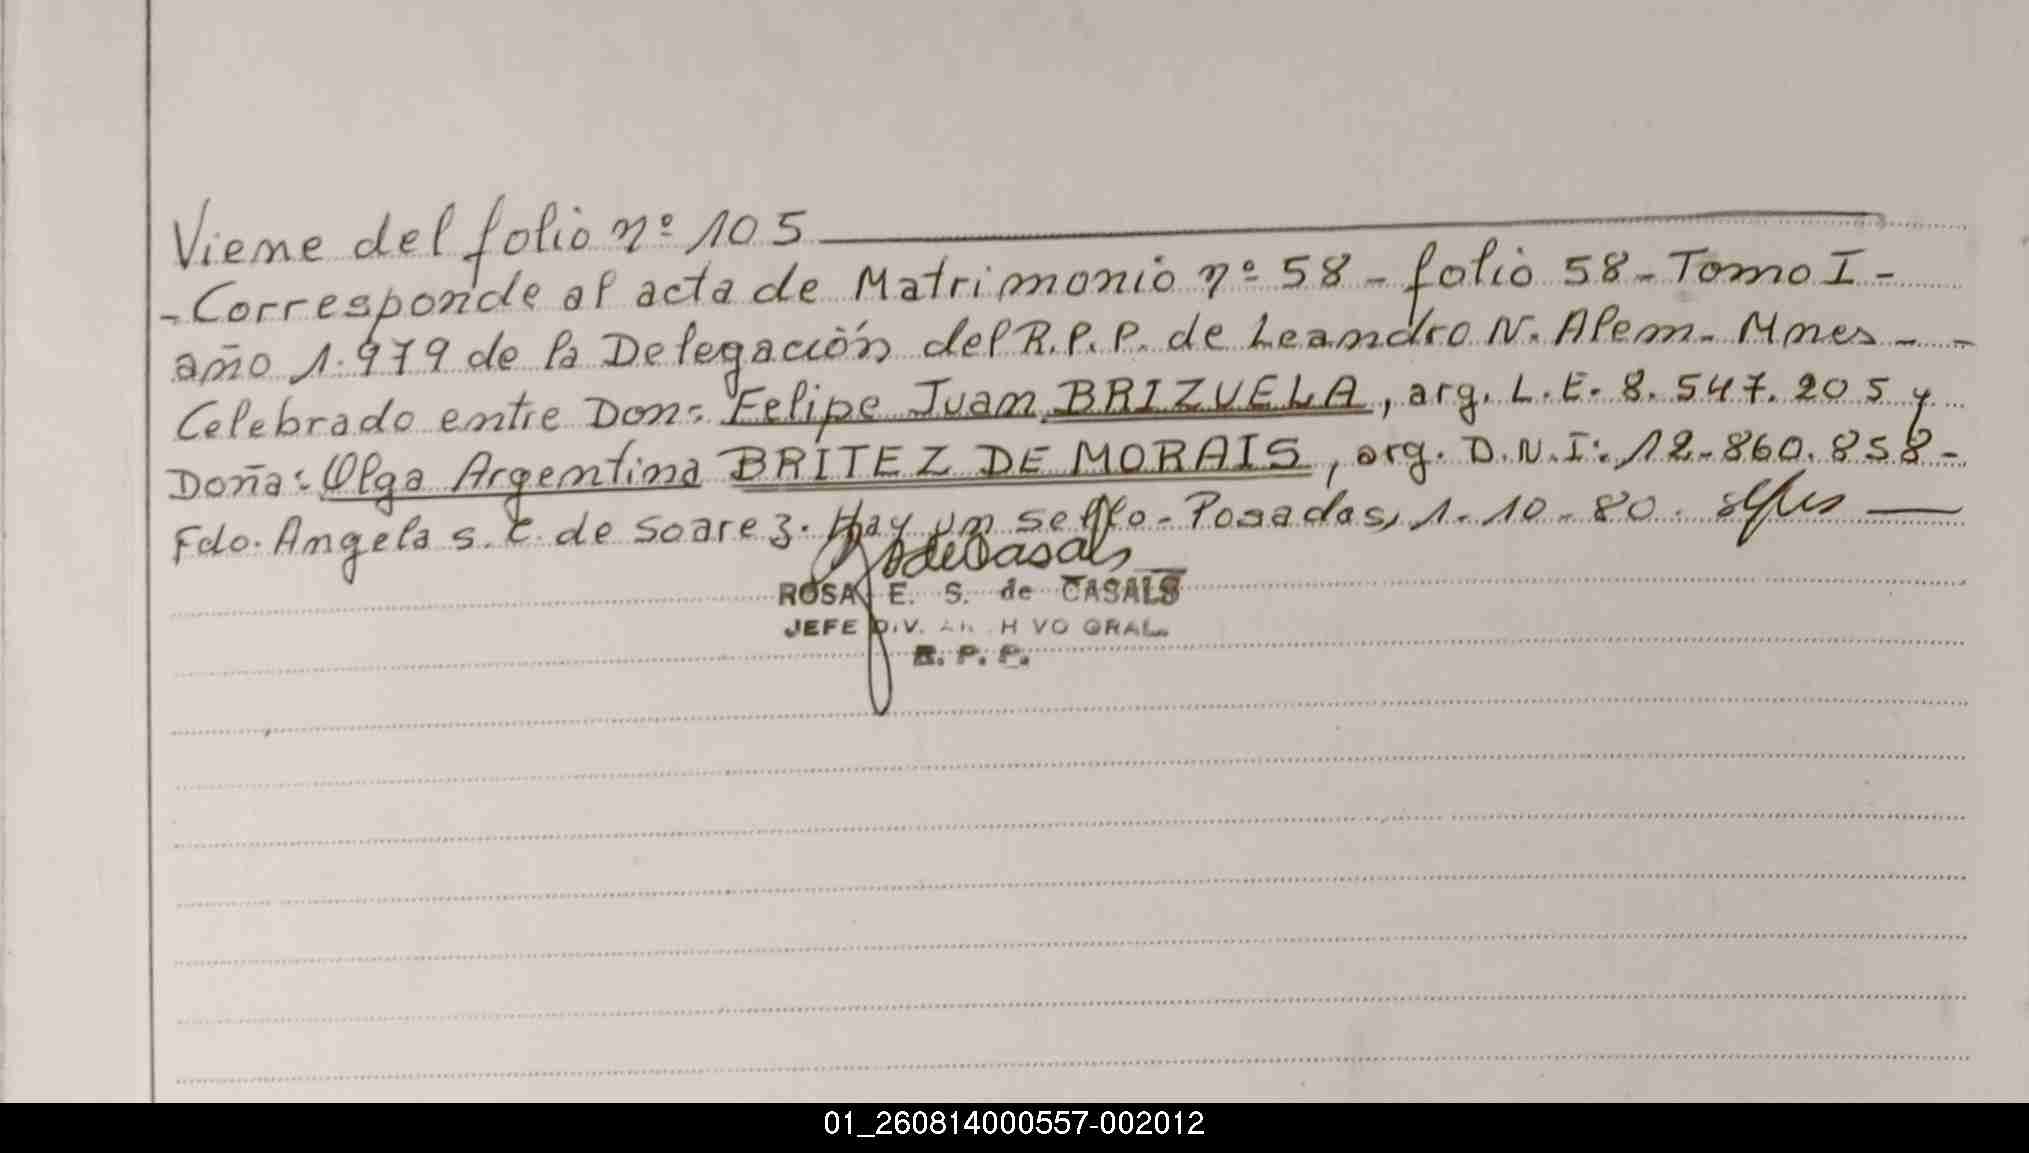 Viene del folio nº 105
- Corresponde al acta de Matrimonio nº 58 - folio 58 - Tomo I -
año 1.979 de la Delegación del R.P.P. de Leandro N. Alem - Mnes - -
Celebrado entre Don: Felipe Juan BRIZUELA, arg. L.E. 8.547.205 y
Doña: Olga Argentina BRITEZ DE MORAIS, arg. D.N.I: 12.860.858 -
Fdo. Angela S. C. de Soarez. Hay un sello - Posadas, 1-10-80.
ROSA E. S. de CASALS
JEFE DIV. GRAL.
R. P. P.
01_260814000557-002012